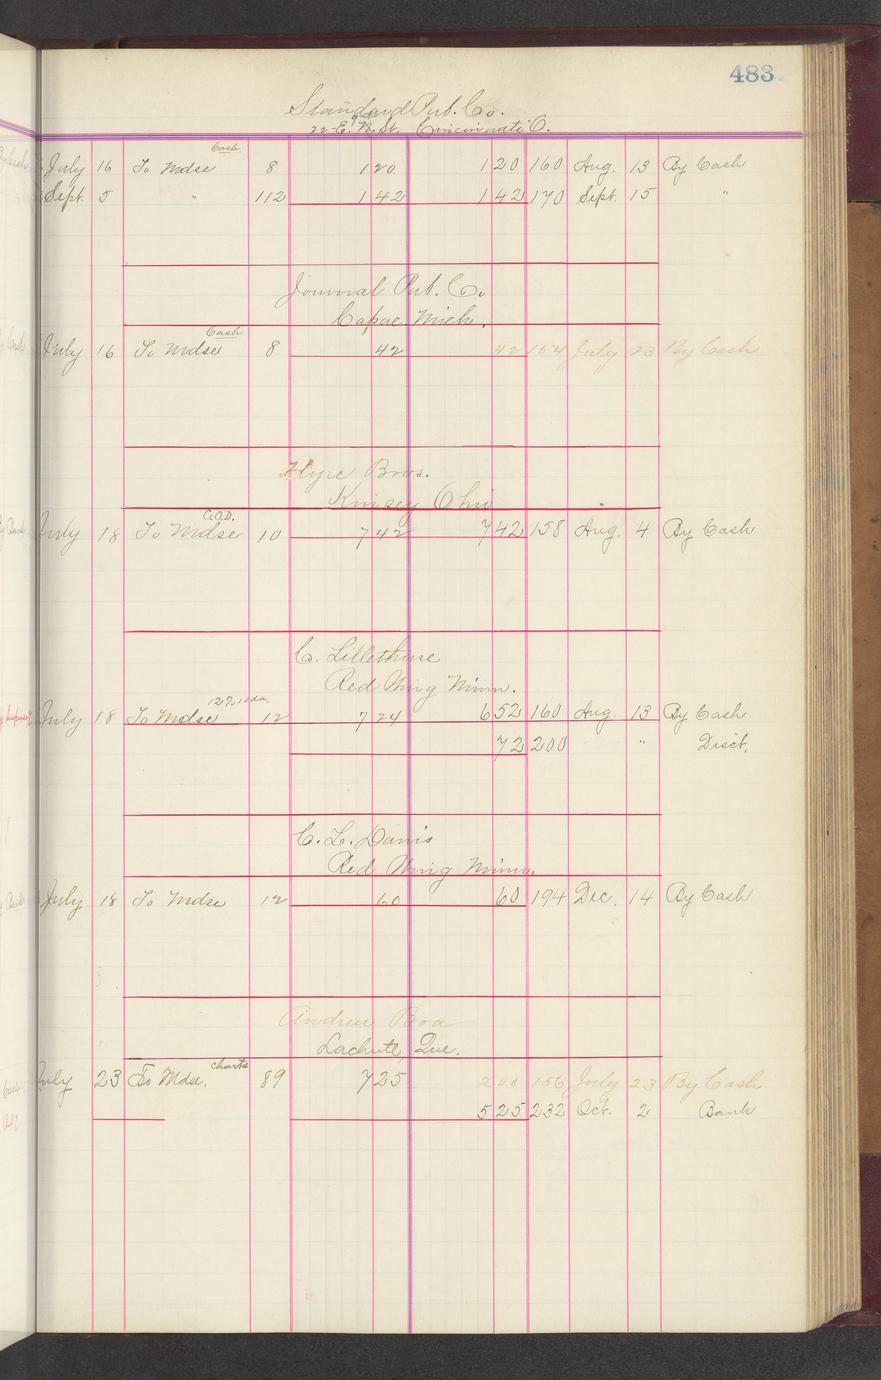 483
Standard Pub. Co.
22 E. 9th St. Cincinnati O.
Cash
July 16 To Mdse 8 1 20 1 20 160 Aug. 13 By Cash
Sept. 5 " 112 1 42 1 42 170 Sept. 15 "
Journal Pub. Co.
Capac, Mich.
Cash
July 16 To Mdse 8 42 42 154 July 23 By Cash
Bros.
Kinsey Ohio
C.O.D.
July 18 To Mdse 10 7 42 7 42 158 Aug. 4 By Cash
C.
Red Wing Minn.
July 18 To Mdse 12 7 24 6 52 160 Aug. 13 By Cash
72 200 " Disct.
C. L. Davis
Red Wing Minn.
July 18 To Mdse 12 60 60 194 Dec. 14 By Cash
Andrew Boa
Lachute, Que.
charts
July 23 To Mdse. 89 7 25 2 00 156 July 23 By Cash
5 25 232 Oct. 2 Bank